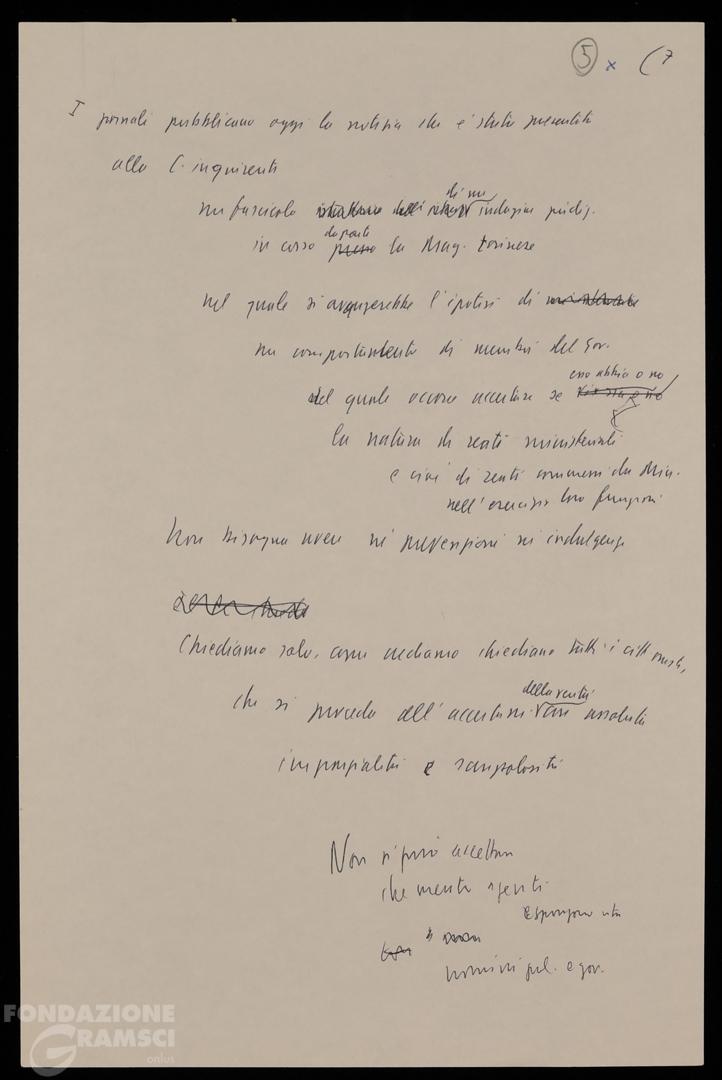 5 x (7
I giornali pubblicano oggi la notizia che è stata presentata
alla C. inquirente
un fascicolo di una indagine giudiz.
in corso da parte la Mag. torinese
nel quale si avanzerebbe l'ipotesi di
un comportamento di membri del Gov.
del quale occorre accertare se esso abbia o no
la natura di reati ministeriali
e cioè di reati commessi da Min.
nell'esercizio loro funzioni
Non bisogna avere né prevenzioni né indulgenze
Chiediamo solo, come crediamo chiedano tutti i citt. onesti,
che si proceda all'accertam. della verità con assoluta
imparzialità e scrupolosità
Non si può accettare
che mentre agenti
espongono vita
uomini pol. e gov.
FONDAZIONE
GRAMSCI
onlus